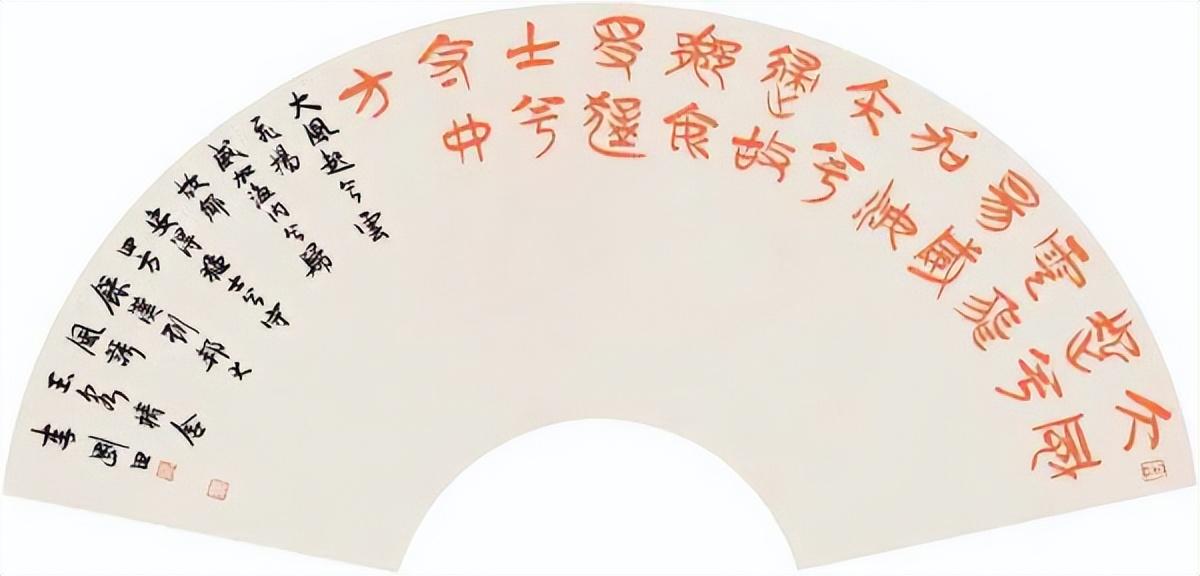 大風
起兮
雲飛
昜威
加海
內兮
歸故
鄉安
得猛
士兮
守四
方
大風起兮雲
飛揚
威加海内兮歸
故鄉
安得猛士兮守
四方
錄漢劉邦大
風歌
玉 精舍
李剛田